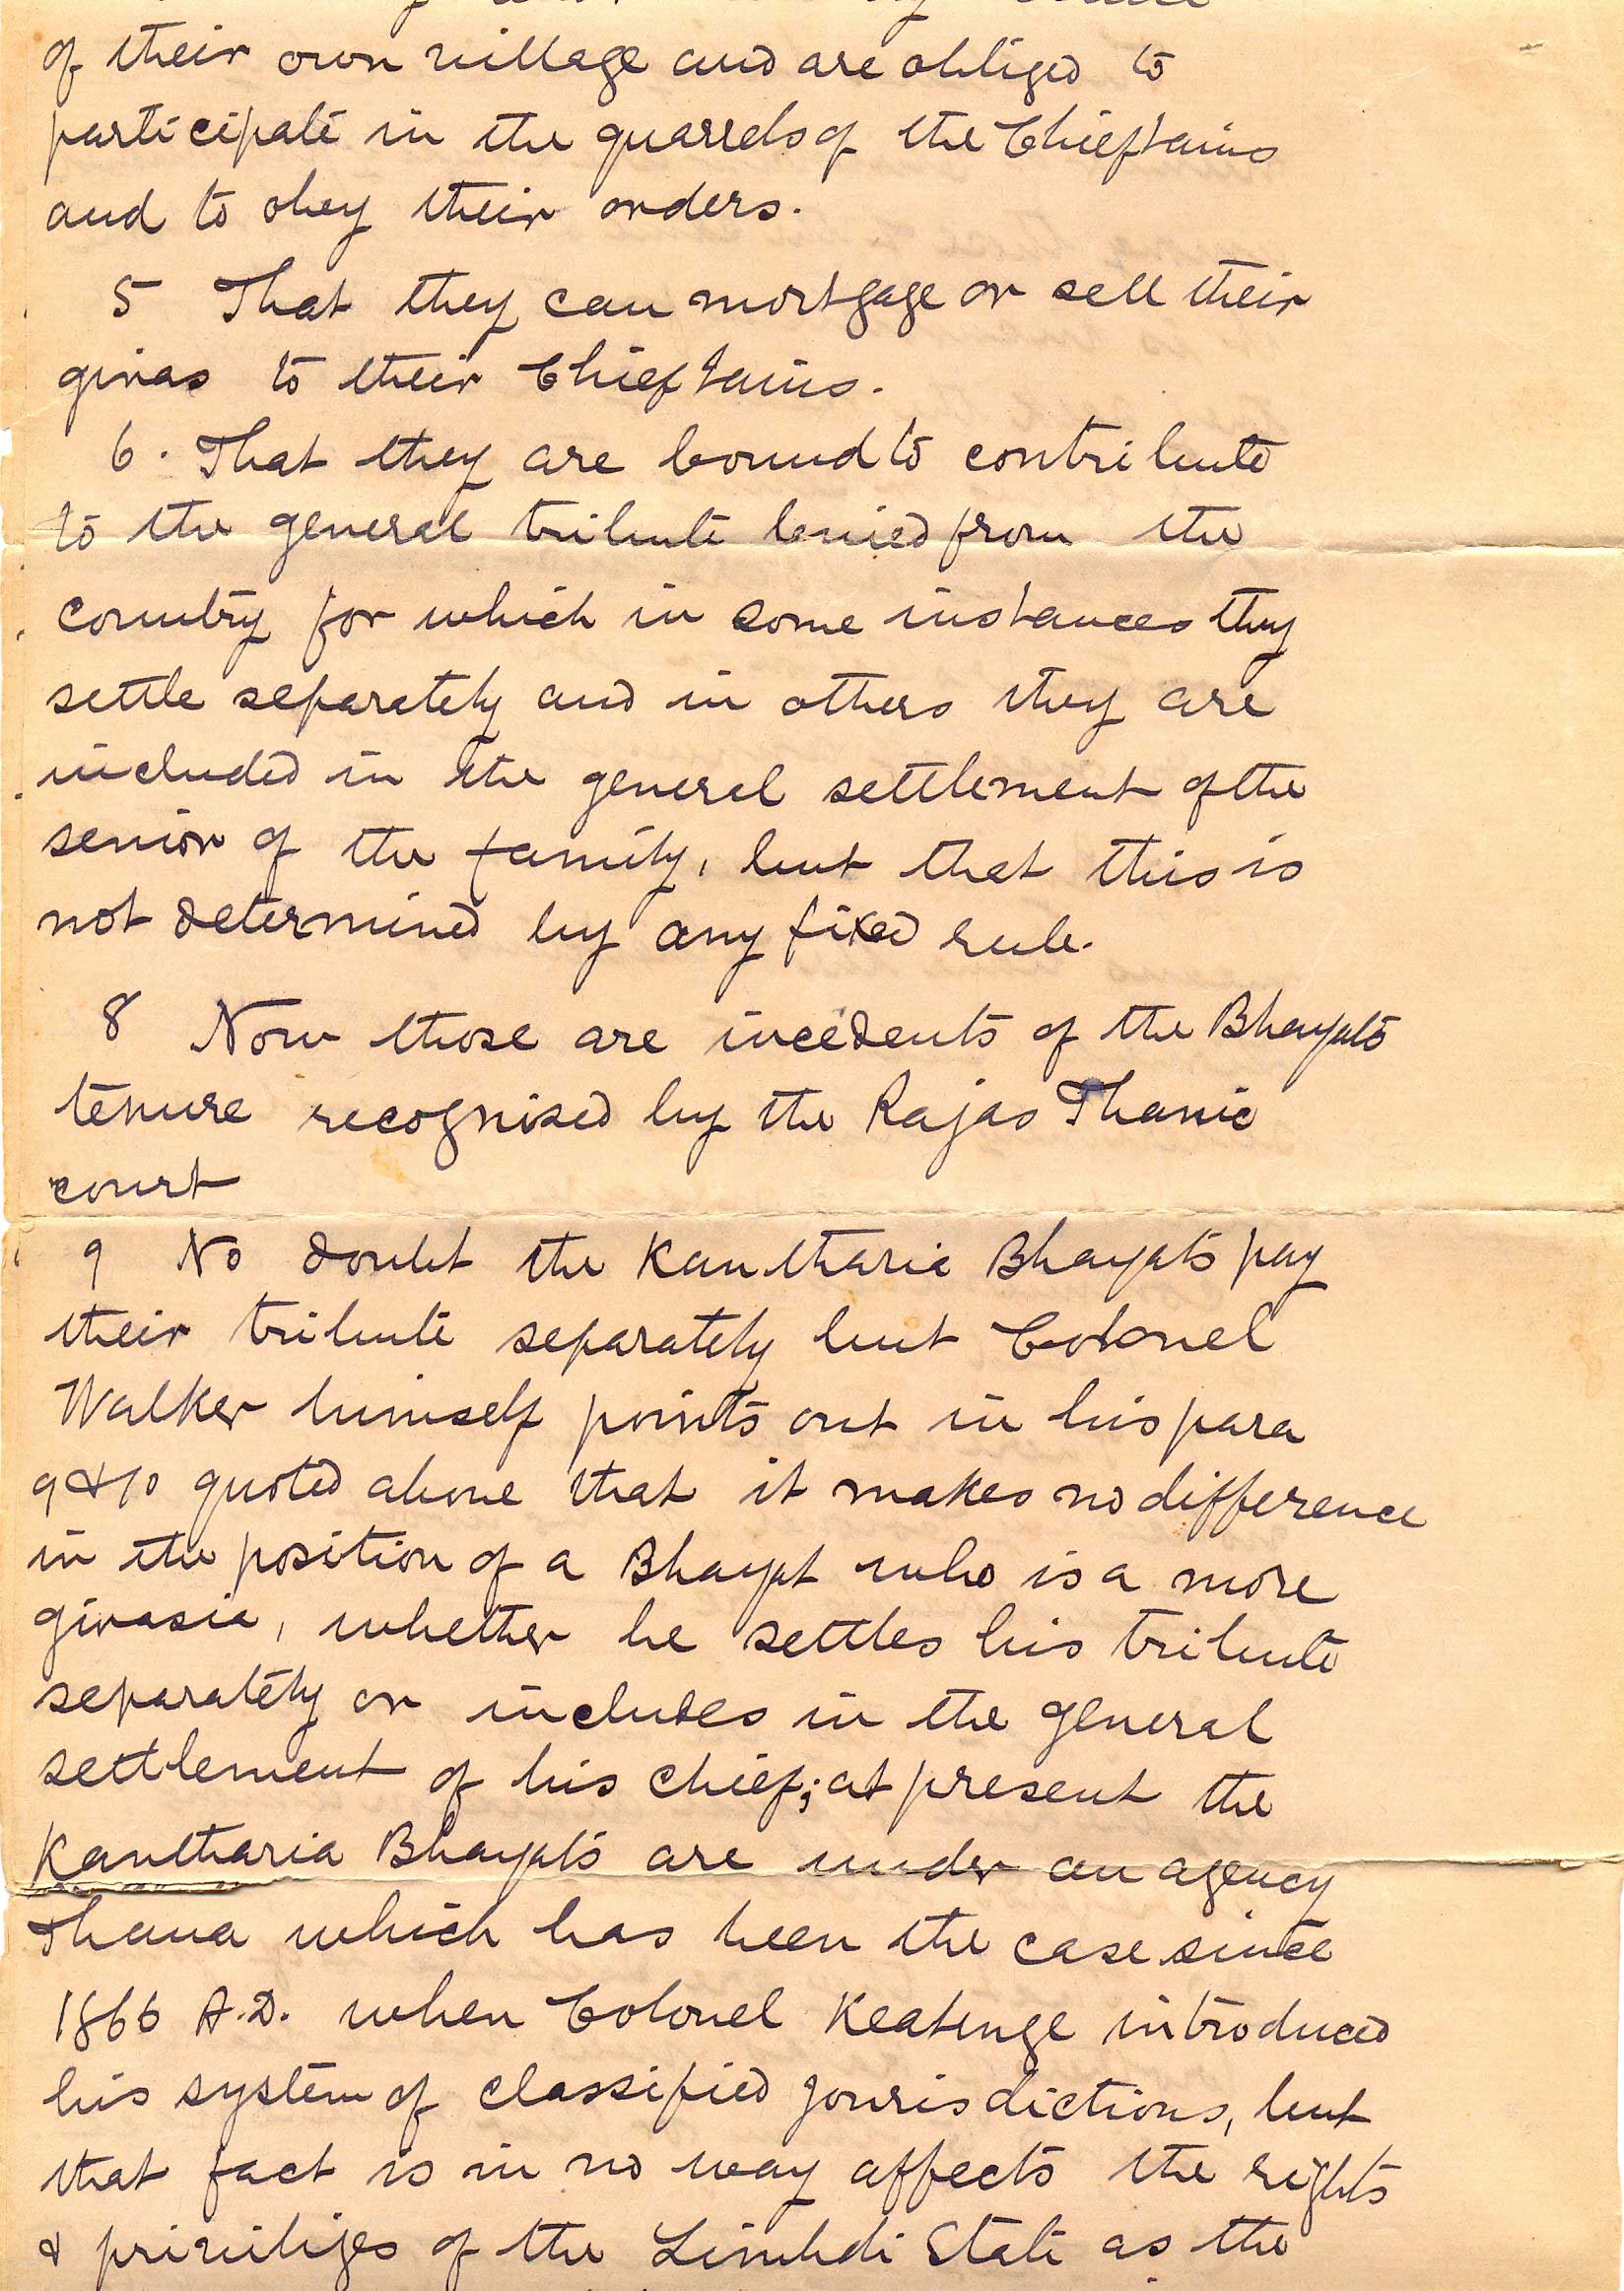 of their own village and are obliged to
participate in the quarrels of the Chieftains
and to obey their orders.
5 That they can mortgage or sell their
giras to their Chieftains.
6. That they are bound to contribute
to the general tribute levied from the
country for which in some instances they
settle separately and in others they are
included in the general settlement of the
senior of the family, but that this is
not determined by any fixed rule.
8 Now those are incedents of the Bhayats
tenure recognised by the Rajas Thanic
court
9 No doubt the Kantharia Bhayats pay
their tribute separately but Colonel
Walker himself points out in his para
9 & 10 quoted above that it makes no difference
in the position of a Bhayat who is a more
girasia, whether he settles his tribute
separately or includes in the general
settlement of his chief; at present the
Kantharia Bhayats are under an agency
Thana which has been the case since
1866 A.D. when Colonel Keatinge introduced
his system of classified jourisdictions, but
that fact is in no way affects the rights
& priviliges of the Limbdi State as the